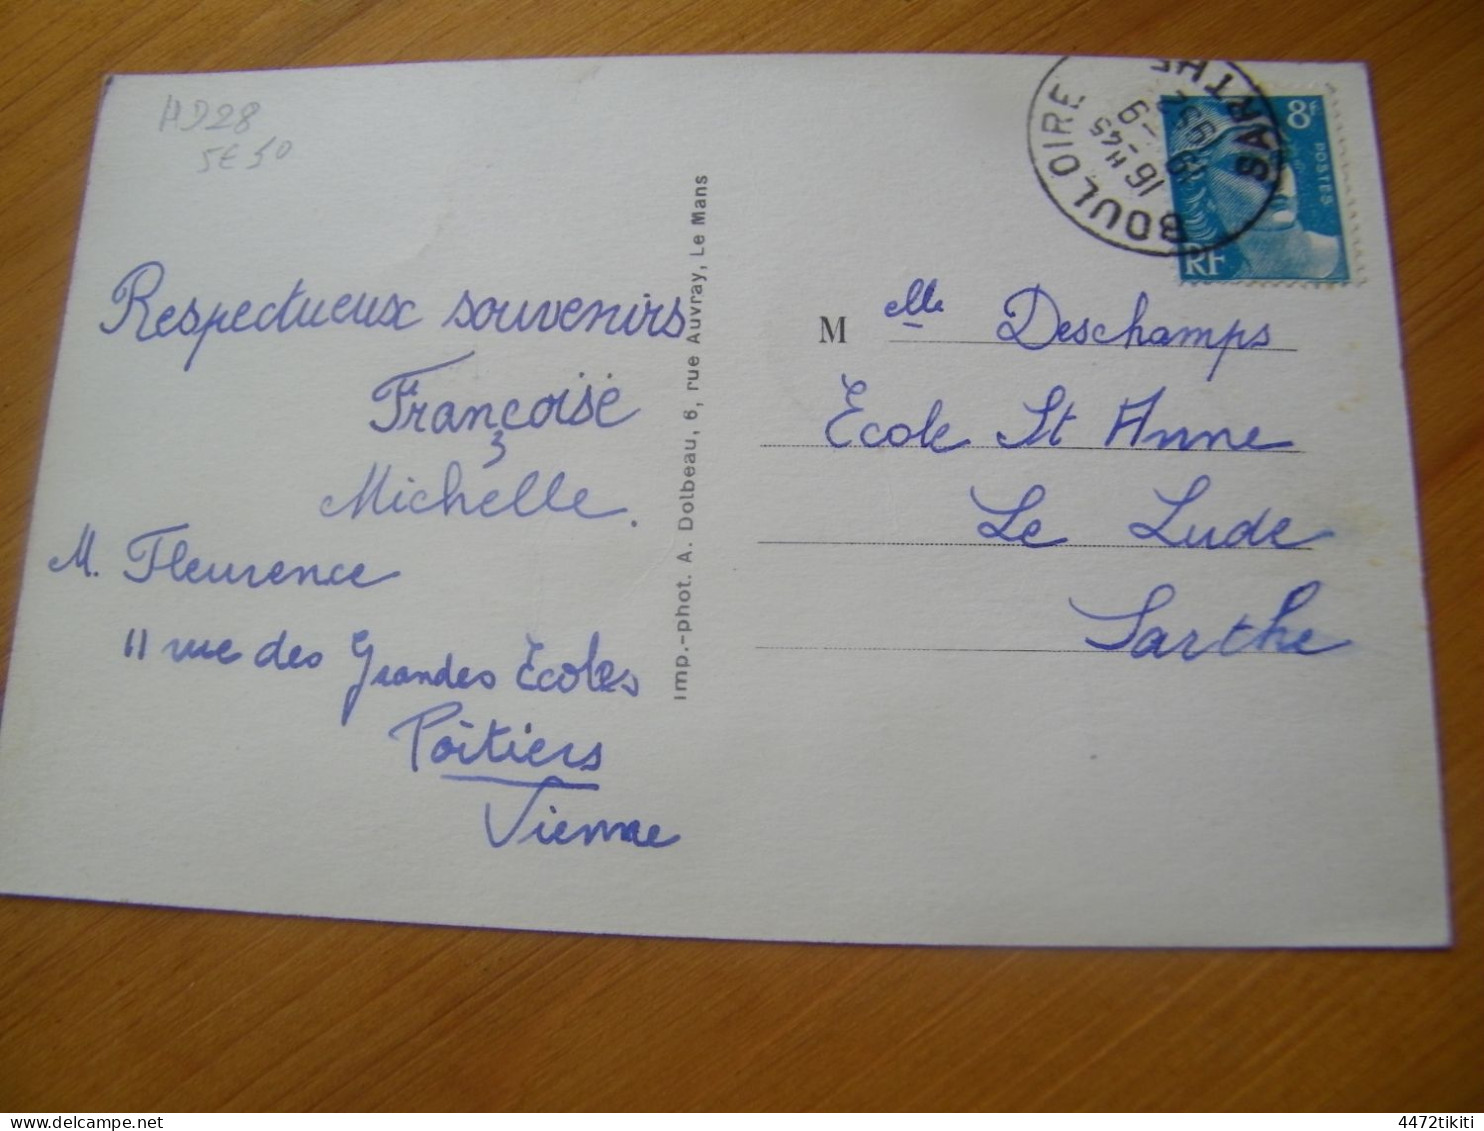 HD28
5€50
Respectueux souvenirs
Françoise
Michelle.
M. Fleurence
11 rue des Grandes Ecoles
Poitiers
Vienne
Imp.-phot. A. Dolbeau, 6, rue Auvray, Le Mans
BOULOIRE
SARTHE
16 H 45
8F
POSTES
RF
Melle Deschamps
Ecole St Anne
Le Lude
Sarthe
4472tikiti